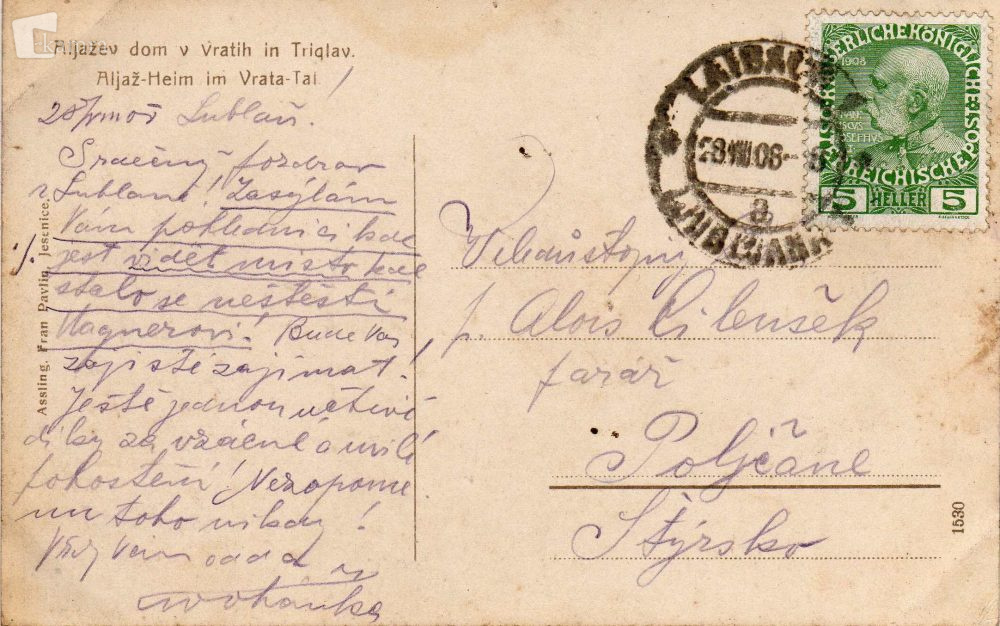 Aljažev dom v Vratih in Triglav.
Aljaž-Heim im Vrata-Tal
28/VIII 08 Lublaň.
Srdečný pozdrav
z Lublaně! Zasýlám
Vám pohlednici kde
jest viděti místo kde
stalo se neštěstí
Wagnerovi! Bude Vás
zajisté zajímat!
Ještě jednou uctivé
díky za vzácné a milé
pohoštění! Nezapome
nu toho nikdy!
Vždy Vám oddaný
Assling. Fran Pavlin, Jesenice.
LAIBACH
28.VIII.08
a
LJUBLJANA
KAISERLICHE KÖNIGLICHE ÖSTERREICHISCHE POST
1908
5 HELLER 5
Velebnústojný
p. Alois Cilenšek
farář
Poljčane
Štýrsko
1530